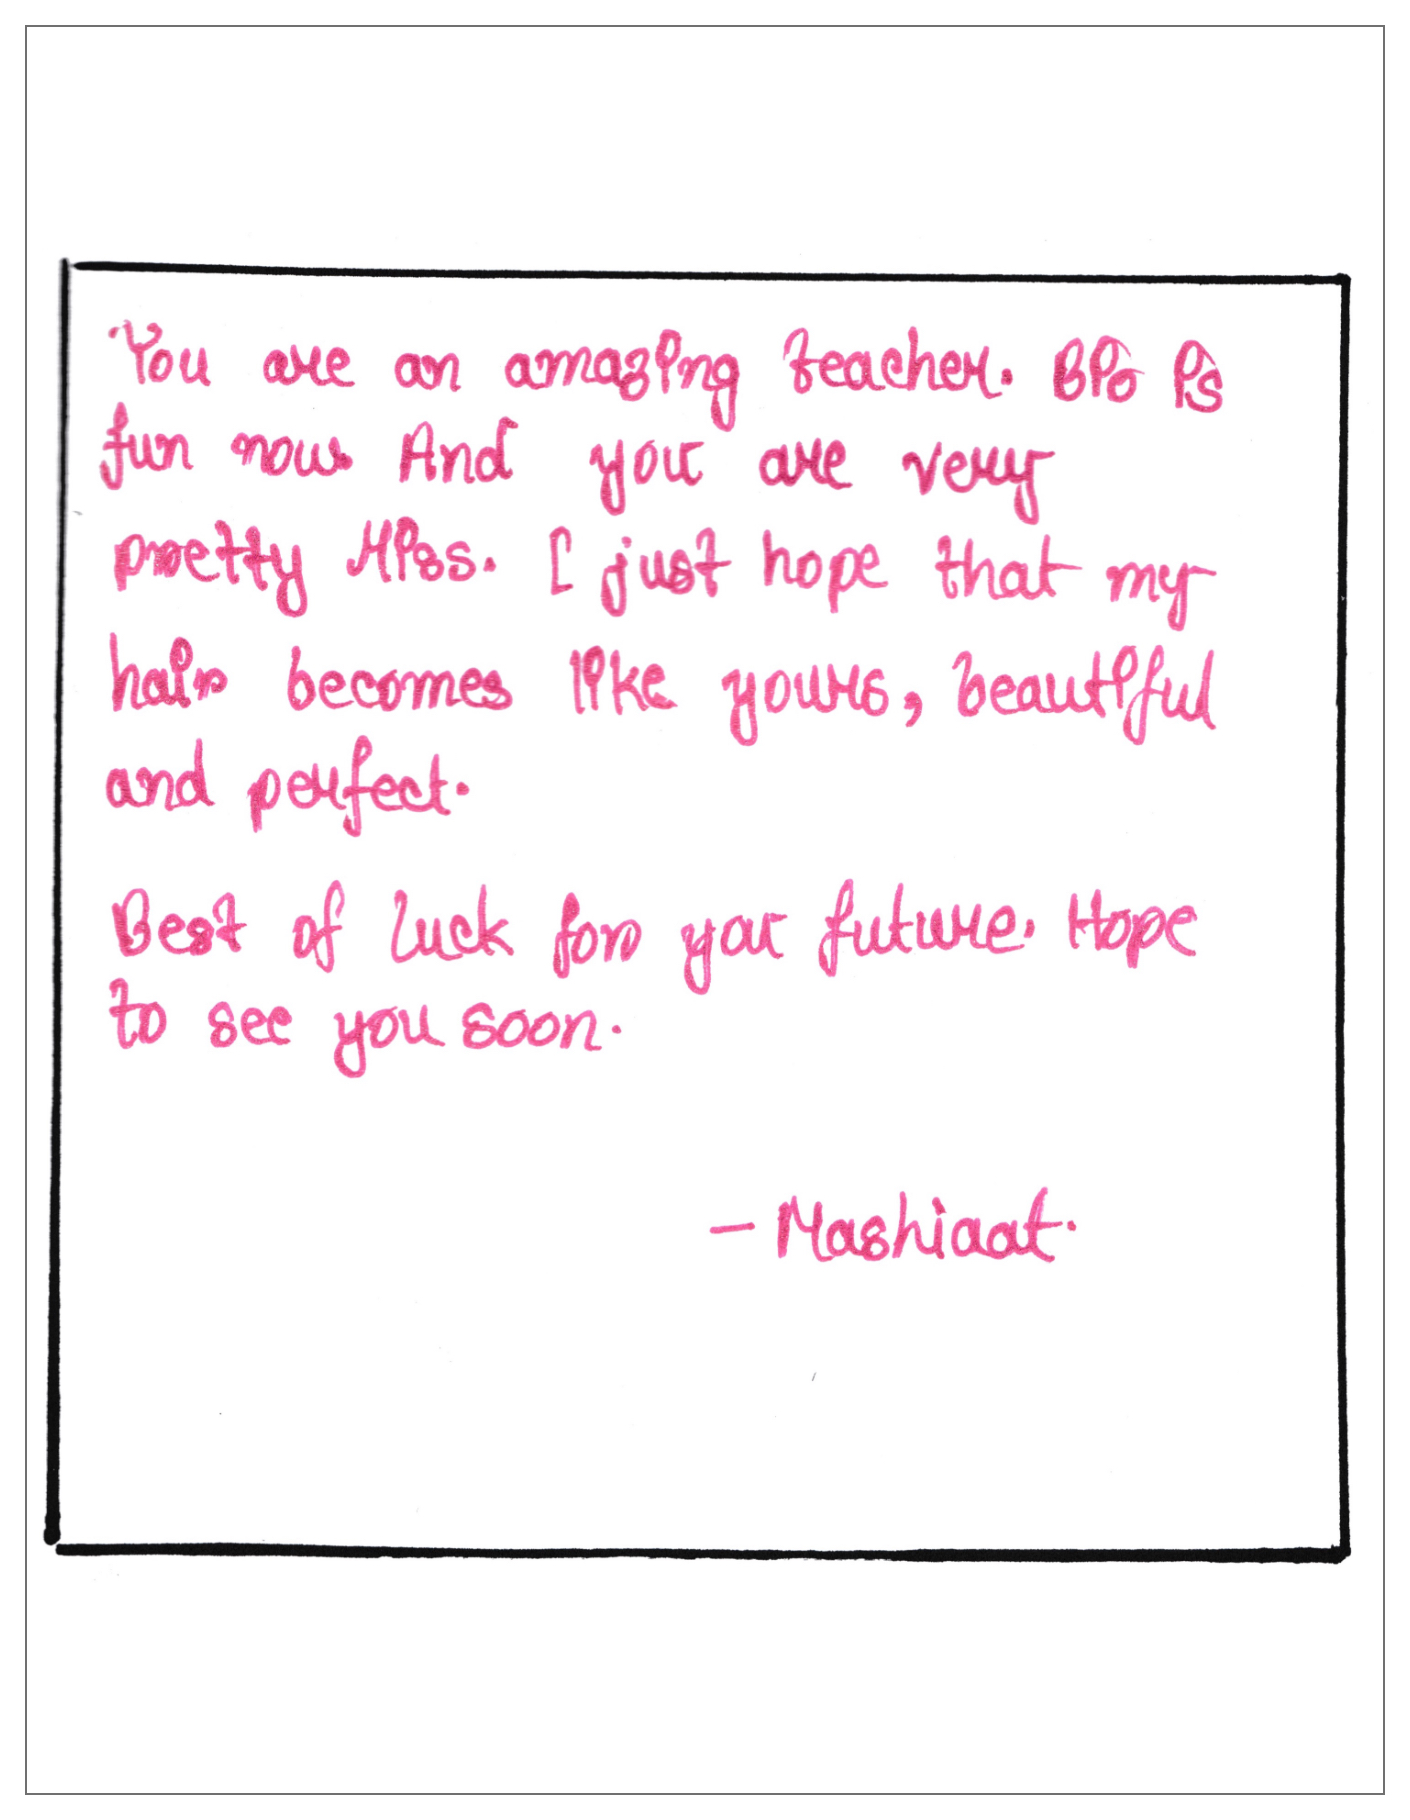 You are an amazing teacher. Bio is
fun now. And you are very
pretty Miss. I just hope that my
hair becomes like yours, beautiful
and perfect.
Best of luck for your future. Hope
to see you soon.
- Mashiaat.